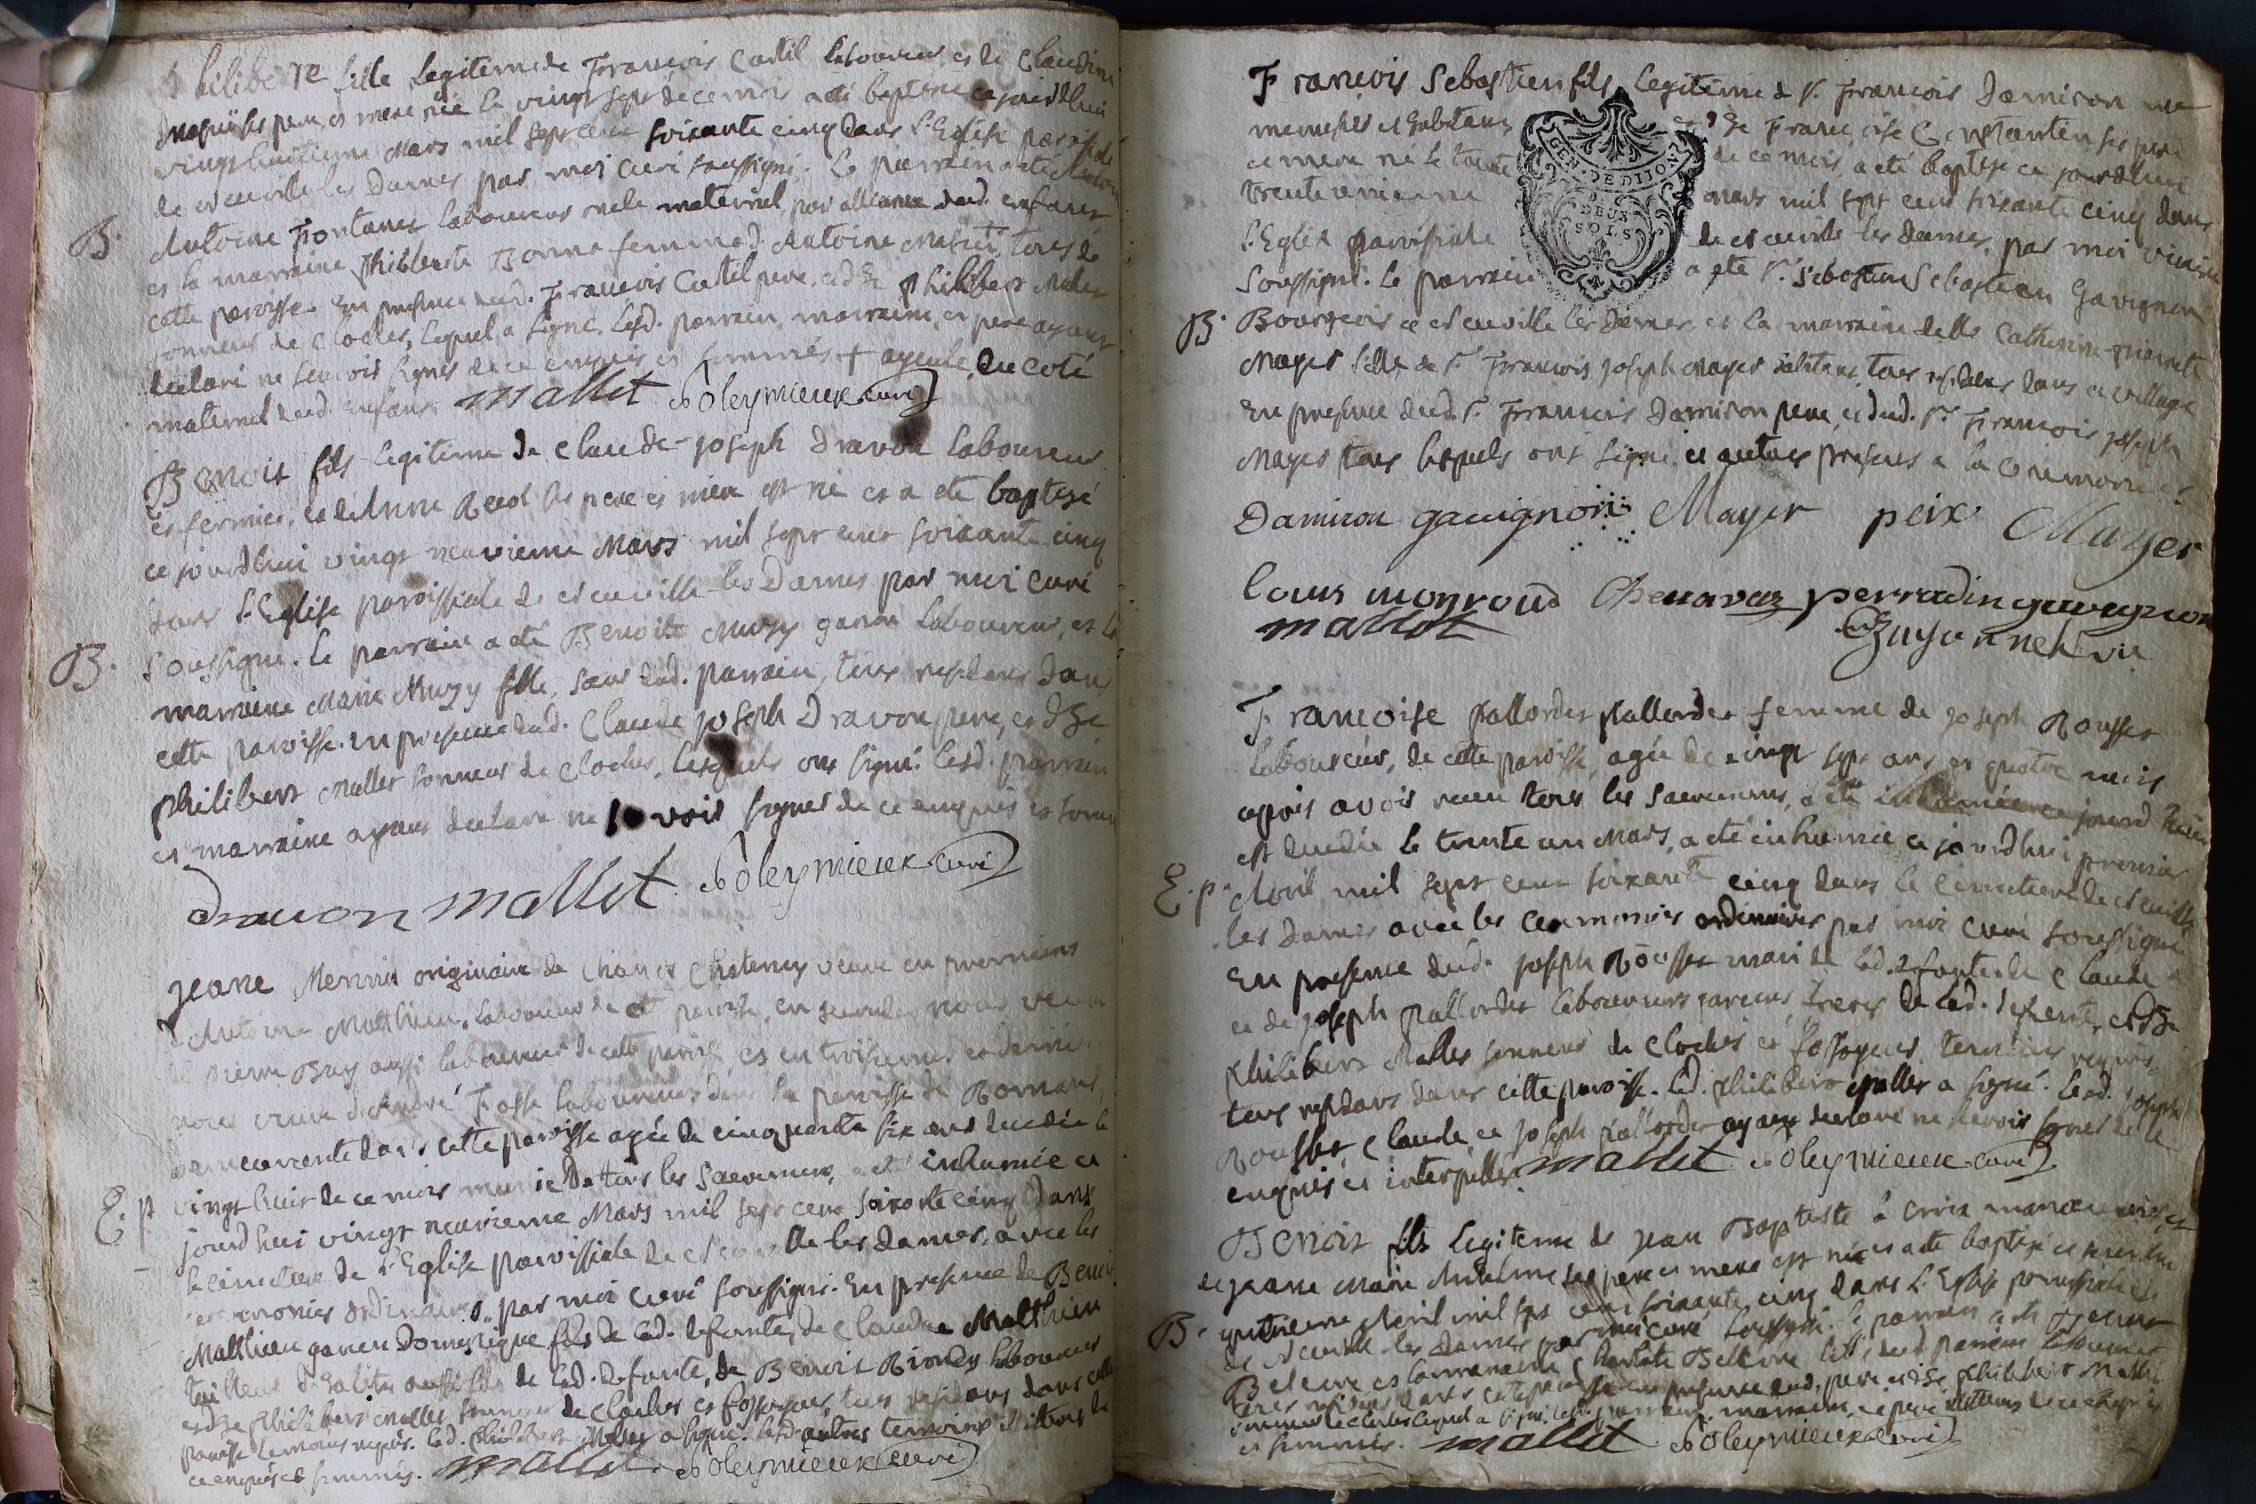 philiberte fille legitime de François Castil laboureur, et de Claudine
ses pere et mere née le vingt sept de ce mois a été baptisée ce jourdhui
vingt huitieme Mars mil sept cent soixante cinq dans l'Eglise paroissiale
de neuville les Dames par moi curé soussigné. le parrain a été
B.
Antoine Fontanet laboureur oncle maternel par alliance dud. enfant
et la marraine philiberte Bonne femme d. Antoine tous de
cette paroisse. En presence dud. François Castil pere, et de philibert Mallet
sonneur de cloches, lequel a signé. lesd. parrain, marraine, et pere ayant
declaré ne scavoir signer de ce enquis et sommés + ayeule du coté
maternel dud. enfant mallet Poleymieux curé
Benoit fils legitime de Claude-joseph Dravon laboureur
et fermier, et de Anne ses pere et mere est né et a été baptizé
ce jourdhui vingt neuvieme Mars mil sept cent soixante cinq
dans l'Eglise paroissiale de neuville-les Dames par moi curé
B.
soussigné. le parrain a été Benoit Muzy garcon laboureur, et la
marraine Marie Muzy fille, soeur dud. parrain, tous residans dans
cette paroisse. en presence dud. Claude joseph Dravon pere, et de
philibert Mallet sonneur de cloches, lesquels ont signé. lesd. parrain
et marraine ayans declaré ne scavoir signer de ce enquis et sommés
Dravon mallet Poleymieux curé
jeane originaire de Chatenay veuve en premieres
d'Antoine Matthieu, laboureur de cette paroisse, en secondes noces veuve
de pierre Brey aussi laboureur de cette paroisse, et en troisiemes et dernieres
noces veuve d'André Fosse laboureur dans la paroisse de Romans,
demeurante dans cette paroisse agée de cinquante six ans decedée le
E. p
vingt huit de ce mois munie de tous les sacremens, a été inhumée ce
jourdhui vingt neuvieme Mars mil sept cent soixante cinq dans
le cimetiere de l'Eglise paroissiale de neuville les Dames, avec les
ceremonies ordinaires par moi curé soussigné. En presence de Benoit
Matthieu garcon domestique fils de lad. defunte, de Claude Matthieu
tailleur d'habits aussi fils de lad. defunte, de Benoit Riondy laboureur
et de philibert Mallet sonneur de cloches et fossoyeur, tous residans dans cette
paroisse temoins requis. led. philibert Mallet a signé. lesd. autres temoins illiteres de
ce enquis et sommés. mallet Poleymieux curé
François Sebastien fils legitime de Sr. François Damiron me
menusier et habitant et de Françoise Constantin ses pere
et mere né le trente de ce mois a été baptisé ce jourdhui
trente unieme mars mil sept cent soixante cinq dans
l'Eglise paroissiale de neuville les dames, par moi vicaire
soussigné. le parrain a été Sr. Sebastien Sebastien Gavignon
GEN. DE DIJON
DEUX
SOLS
B.
Bourgeois de neuville les Dames et la marraine delle Catherine-pierrette
Mayer fille de Sr. François joseph Mayer habitant, tous residens dans ce village
En presence dud. Sr. François Damiron pere, et dud. Sr. François joseph
Mayer tous lesquels ont signé et autres presens a la ceremonie
Damiron gavignon Mayer peix Mayer
louis monroud Chenavaz perradin gavignon
mallet Guyonnet vic
Françoise pallordet pallordet femme de joseph Rousset
laboureur, de cette paroisse, agée de vingt sept ans et quatre mois
apres avoir recu tous les sacremens, a été inhumée ce jourd'hui
est decedée le trente un Mars, a été inhumée ce jourdhui premier
E. p.
Avril mil sept cent soixante cinq dans le cimetiere de neuville
les dames avec les ceremonies ordinaires par moi curé soussigné
En presence dud. joseph Rousset mari de lad. defunte, de Claude
et de joseph pallordet laboureurs garcons, freres de lad. defunte, et de
philibert Mallet sonneur de cloches et fossoyeur temoins requis,
tous residans dans cette paroisse. led. philibert Mallet a signé. lesd. joseph
Rousset Claude et joseph pallordet ayans declaré ne scavoir signer de ce
enquis et interpellés mallet Poleymieux curé
Benoit fils legitime de jean Baptiste manoeuvrier, et
de jeane Marie Anthelme ses pere et mere est né et a été baptisé ce jourdhui
B.
quatrieme Avril mil sept cent soixante cinq dans l'Eglise paroissiale
de neuville-les dames par moi curé soussigné. le parrain a été Benoit
et la marraine Charlote fille dud. parrain laboureur
tous residans dans cette paroisse en presence dud. pere et de philibert Mallet
sonneur de cloches lequel a signé. lesd. parrain, marraine, et pere illiteres de ce enquis
et sommés. mallet Poleymieux curé